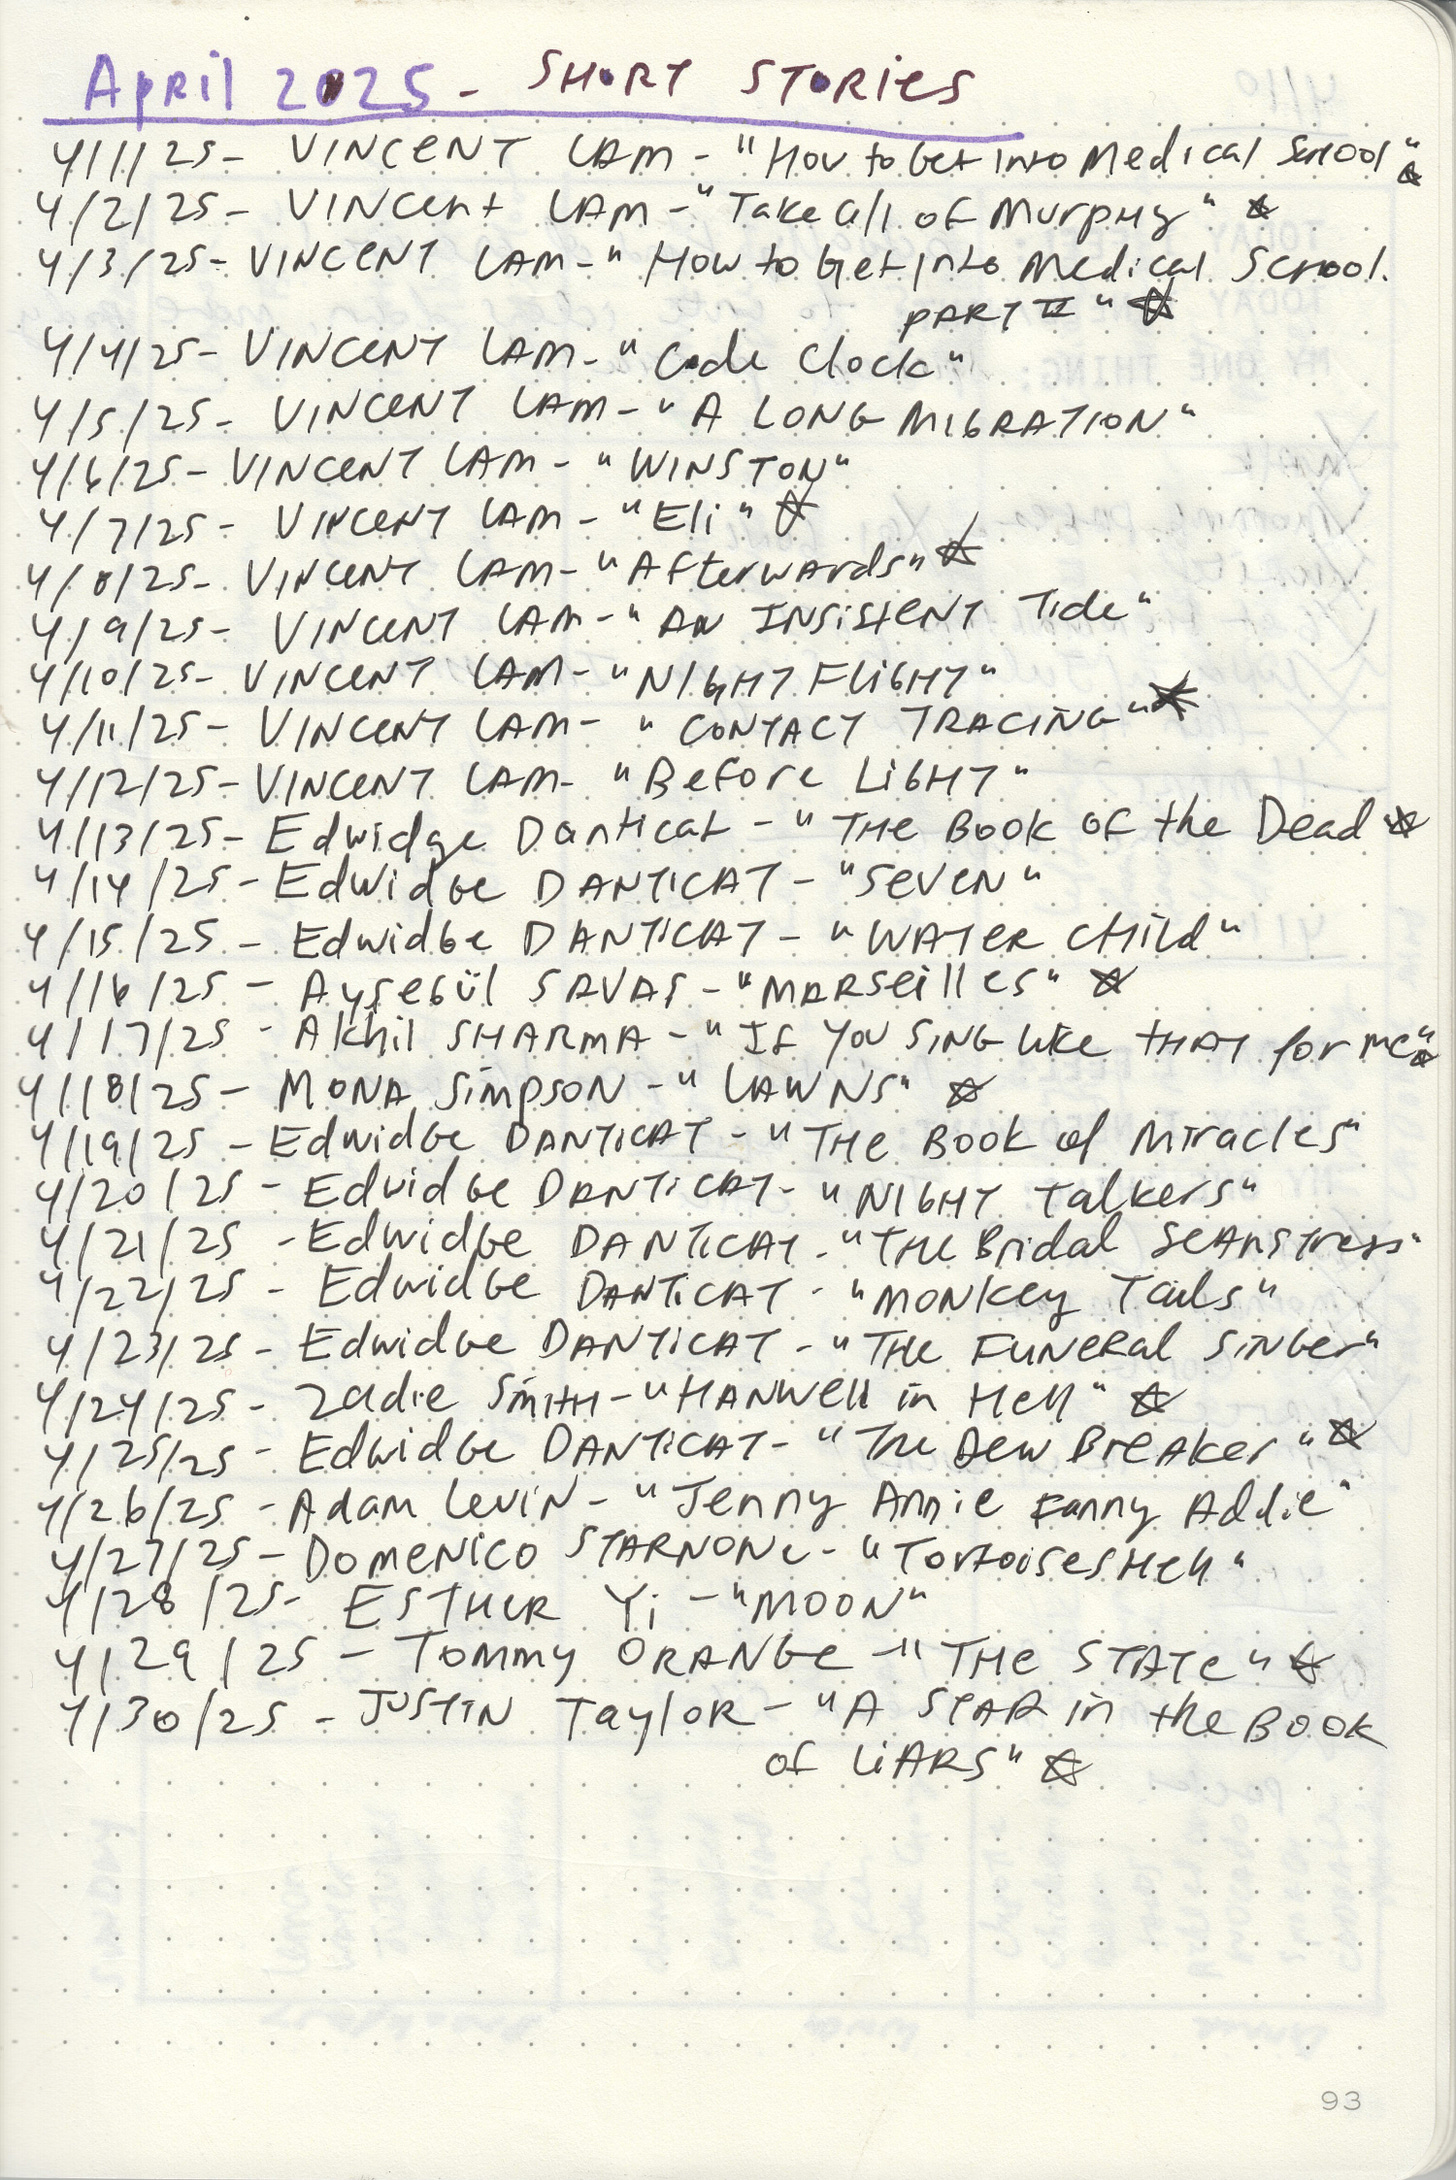 April 2025 - SHORT STORIES
4/1/25 - VINCENT LAM - "How to Get Into Medical School"
4/2/25 - VINCENT LAM - "Take All of Murphy"
4/3/25 - VINCENT LAM - "How to Get Into Medical School.
PART II"
4/4/25 - VINCENT LAM - "Code Clock"
4/5/25 - VINCENT LAM - "A LONG MIGRATION"
4/6/25 - VINCENT LAM - "WINSTON"
4/7/25 - VINCENT LAM - "Eli"
4/8/25 - VINCENT LAM - "Afterwards"
4/9/25 - VINCENT LAM - "AN INSISTENT Tide"
4/10/25 - VINCENT LAM - "NIGHT FLIGHT"
4/11/25 - VINCENT LAM - "CONTACT TRACING"
4/12/25 - VINCENT LAM - "Before LIGHT"
4/13/25 - Edwidge Danticat - "THE BOOK OF the Dead
4/14/25 - Edwidge DANTICAT - "SEVEN"
4/15/25 - Edwidge DANTICAT - "WATER CHILD"
4/16/25 - Ayşegül SAVAŞ - "MARSEILLES"
4/17/25 - Akhil SHARMA - "If YOU SING like THAT for me"
4/18/25 - MONA SIMPSON - "LAWNS"
4/19/25 - Edwidge DANTICAT - "THE BOOK of Miracles"
4/20/25 - Edwidge DANTICAT - "NIGHT Talkers"
4/21/25 - Edwidge DANTICAT - "THE Bridal SEAMSTRESS"
4/22/25 - Edwidge DANTICAT - "MONKEY Tails"
4/23/25 - Edwidge DANTICAT - "THE FUNERAL SINGER"
4/24/25 - Zadie SMITH - "HANWELL in Hell"
4/25/25 - Edwidge DANTICAT - "The Dew BREAKER"
4/26/25 - Adam Levin - "Jenny Annie Fanny Addie"
4/27/25 - DOMENICO STARNONE - "TortoiseSHell"
4/28/25 - ESTHER Yi - "MOON"
4/29/25 - TOMMY ORANGE - "THE STATE"
4/30/25 - JUSTIN TAYLOR - "A STAR in the BOOK
of LIARS"
93